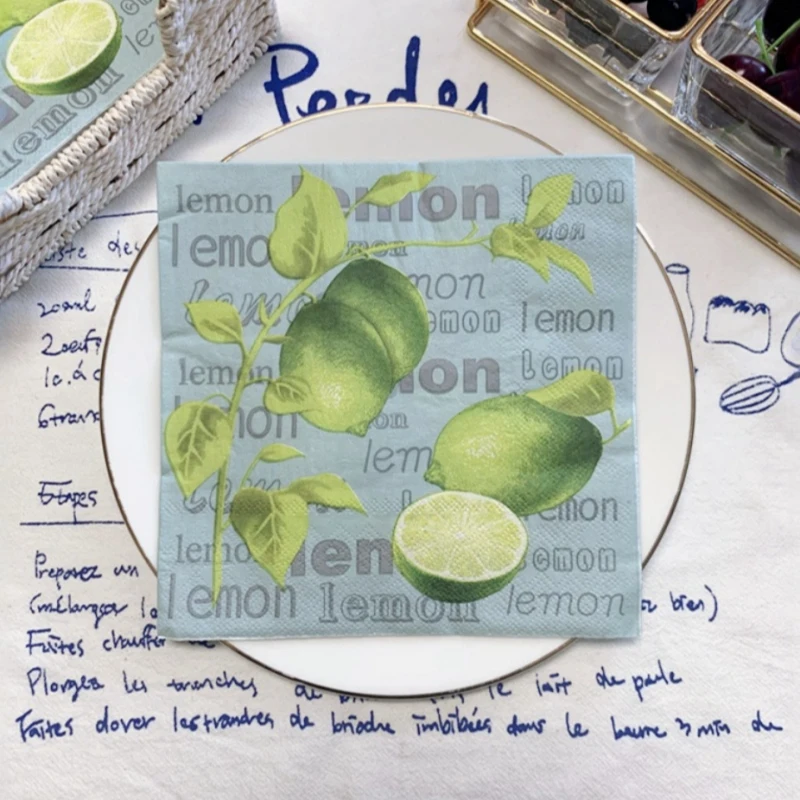 Perdu
lemon lemon lemon
lemo mon emon
Lemo mon
emon lemon
lemon mon Lemon
mon on
lem
Lem emon
lemon len emon
lemon lemon lemon
20cml
2oeufs
1c.à c
6tran
Etapes
Preparez un
(mélanger la bien)
Faites chauffer
Plongez les tranches de le lait de poule
Faites dorer les tranches de brioche imbibées dans le beurre 3 min de